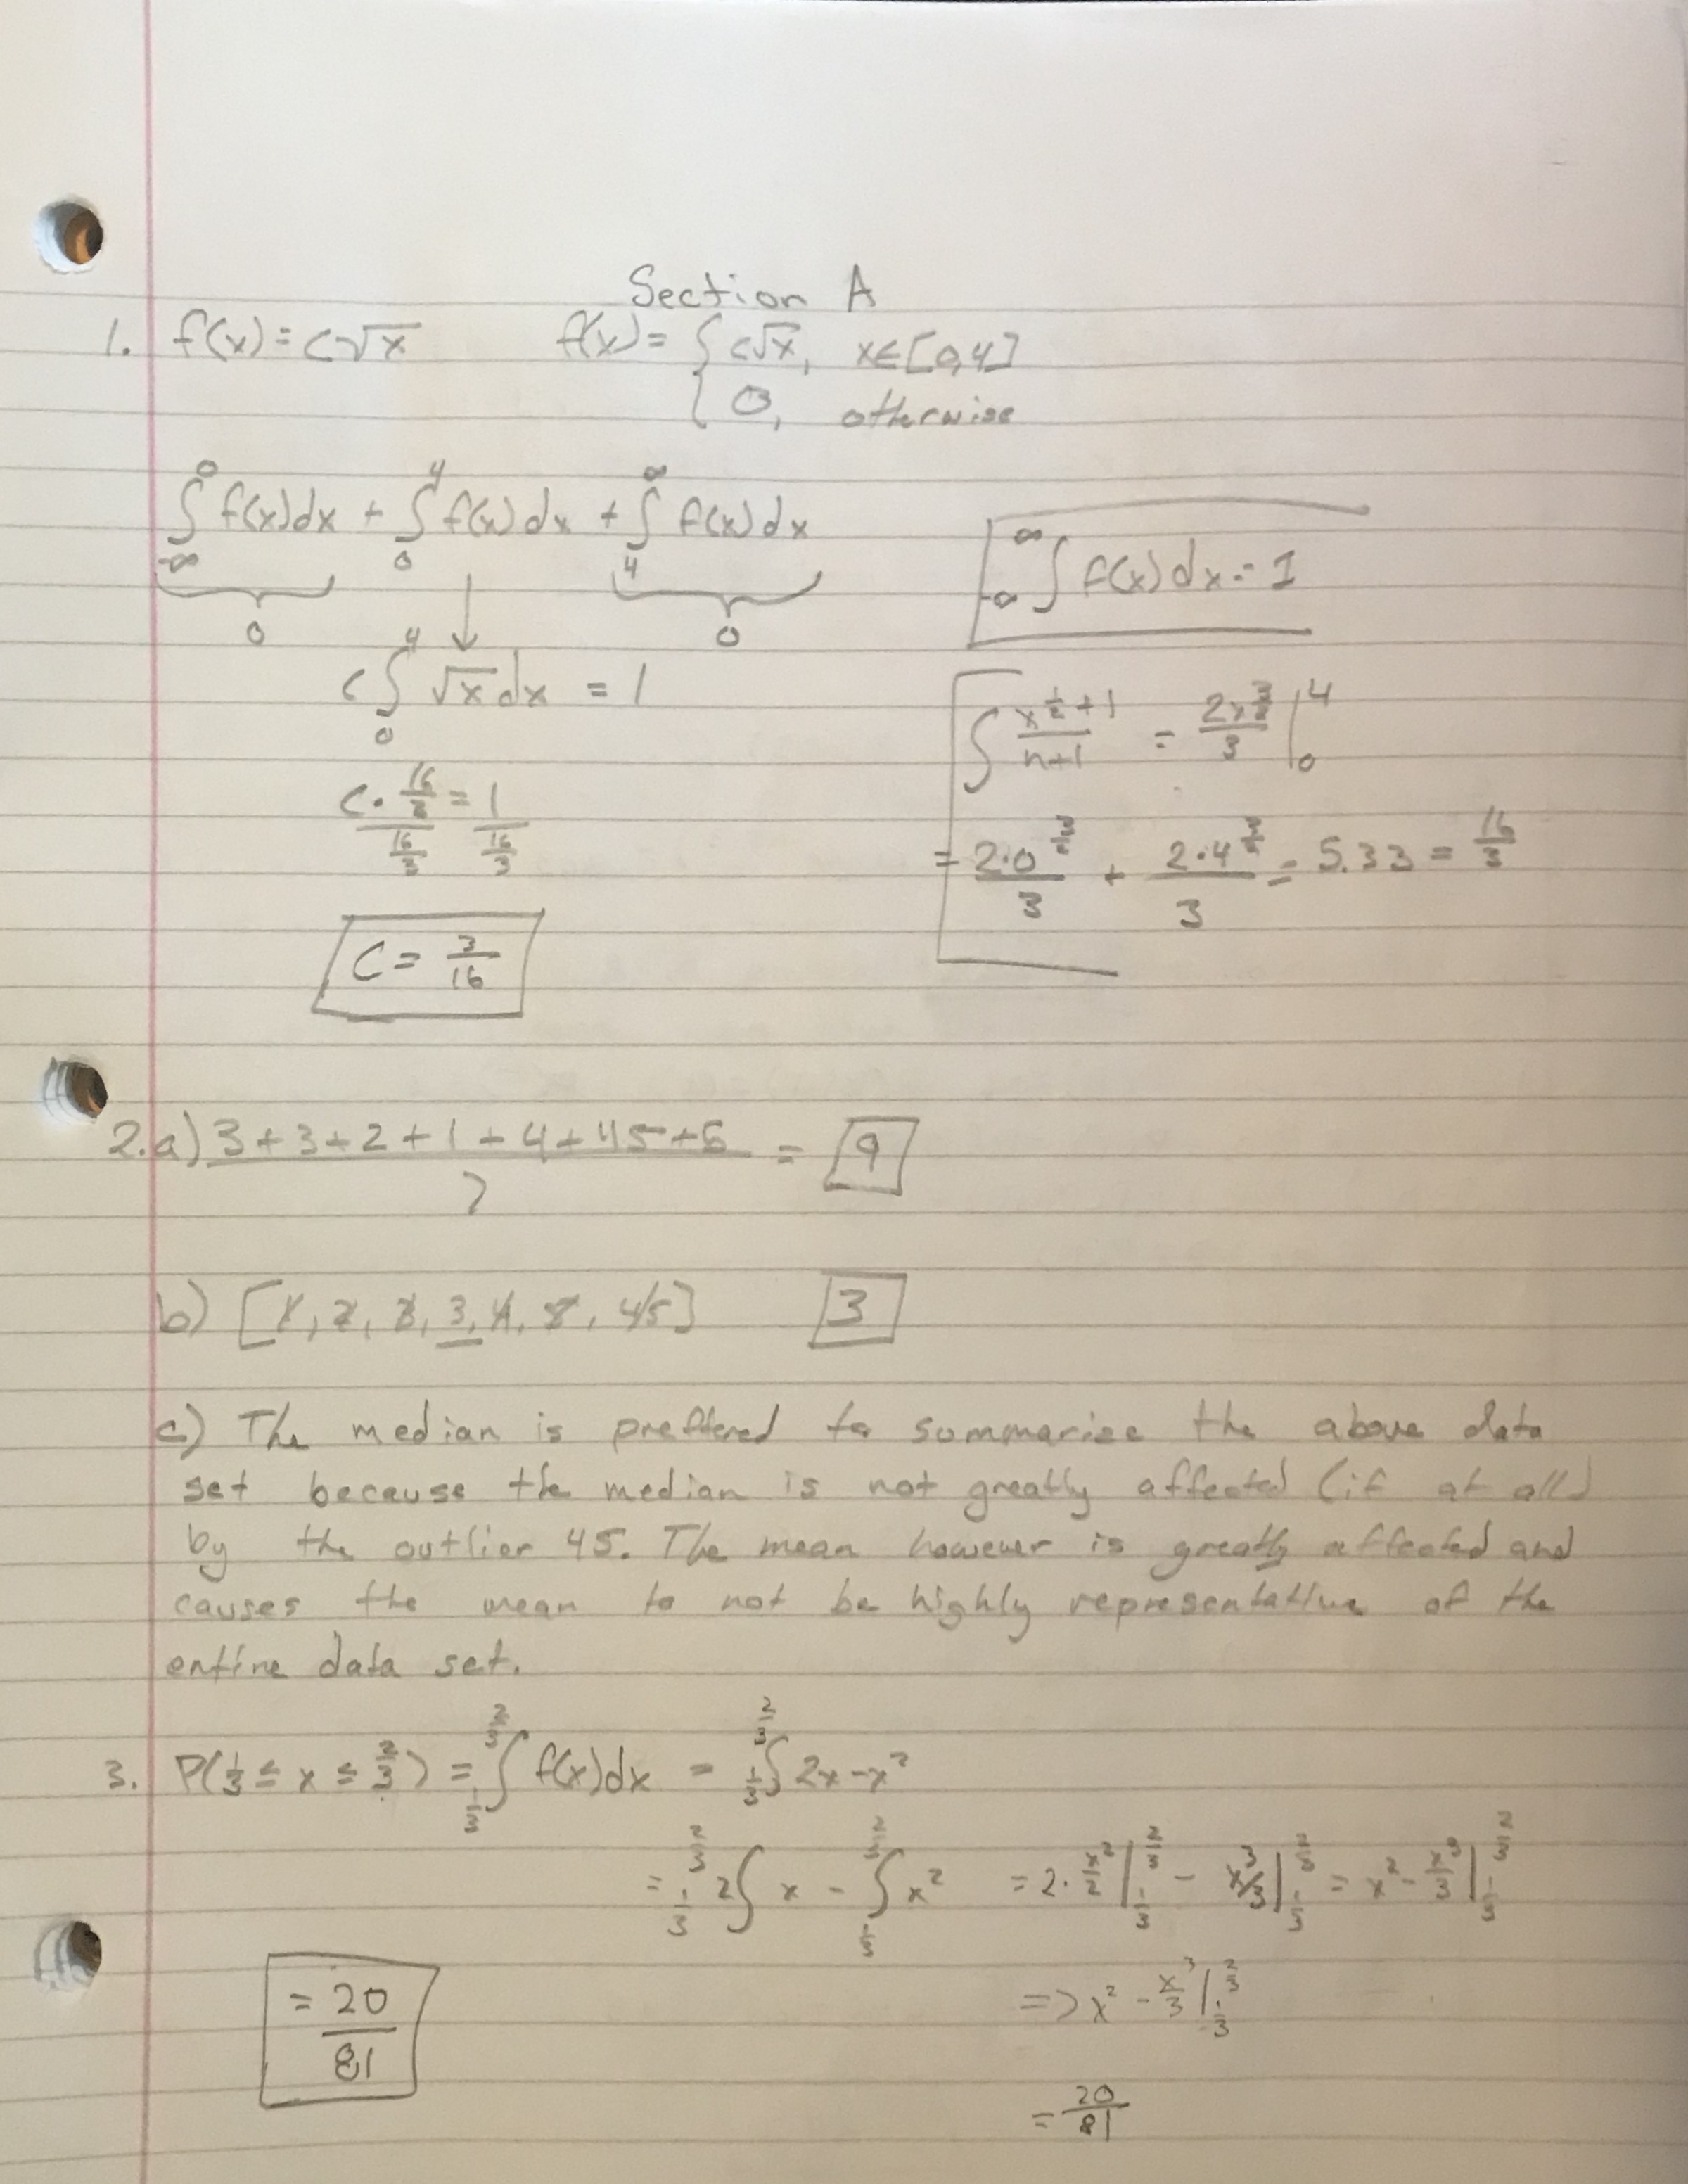 Section A
1. f(x) = c√x    f(x) = { c√x, x∈[0,4]
{ 0, otherwise
∫_{-∞}^{0} f(x)dx + ∫_{0}^{4} f(x)dx + ∫_{4}^{∞} f(x)dx    ∫_{-∞}^{∞} f(x)dx = 1
0    ↓    0
c∫_{0}^{4} √x dx = 1    ∫ x^{1/2 + 1}/(n+1) = 2x^{3/2}/3 |_{0}^{4}
c · 16/3 = 1    = 2·0^{3/2}/3 + 2·4^{3/2}/3 = 5.33 = 16/3
16/3    16/3
c = 3/16
2. a) (3+3+2+1+4+45+5)/7 = 9
b) [1, 2, 3, 3, 4, 5, 45]    3
c) The median is preffered to summarize the above data
set because the median is not greatly affected (if at all)
by the outlier 45. The mean however is greatly affected and
causes the mean to not be highly representative of the
entire data set.
3. P(1/3 ≤ x ≤ 2/3) = ∫_{1/3}^{2/3} f(x)dx = ∫_{1/3}^{2/3} 2x-x²
= 2∫_{1/3}^{2/3} x - ∫_{1/3}^{2/3} x² = 2·x²/2 |_{1/3}^{2/3} - x³/3 |_{1/3}^{2/3} = x² - x³/3 |_{1/3}^{2/3}
=> x² - x³/3 |_{1/3}^{2/3}
= 20/81
= 20/81